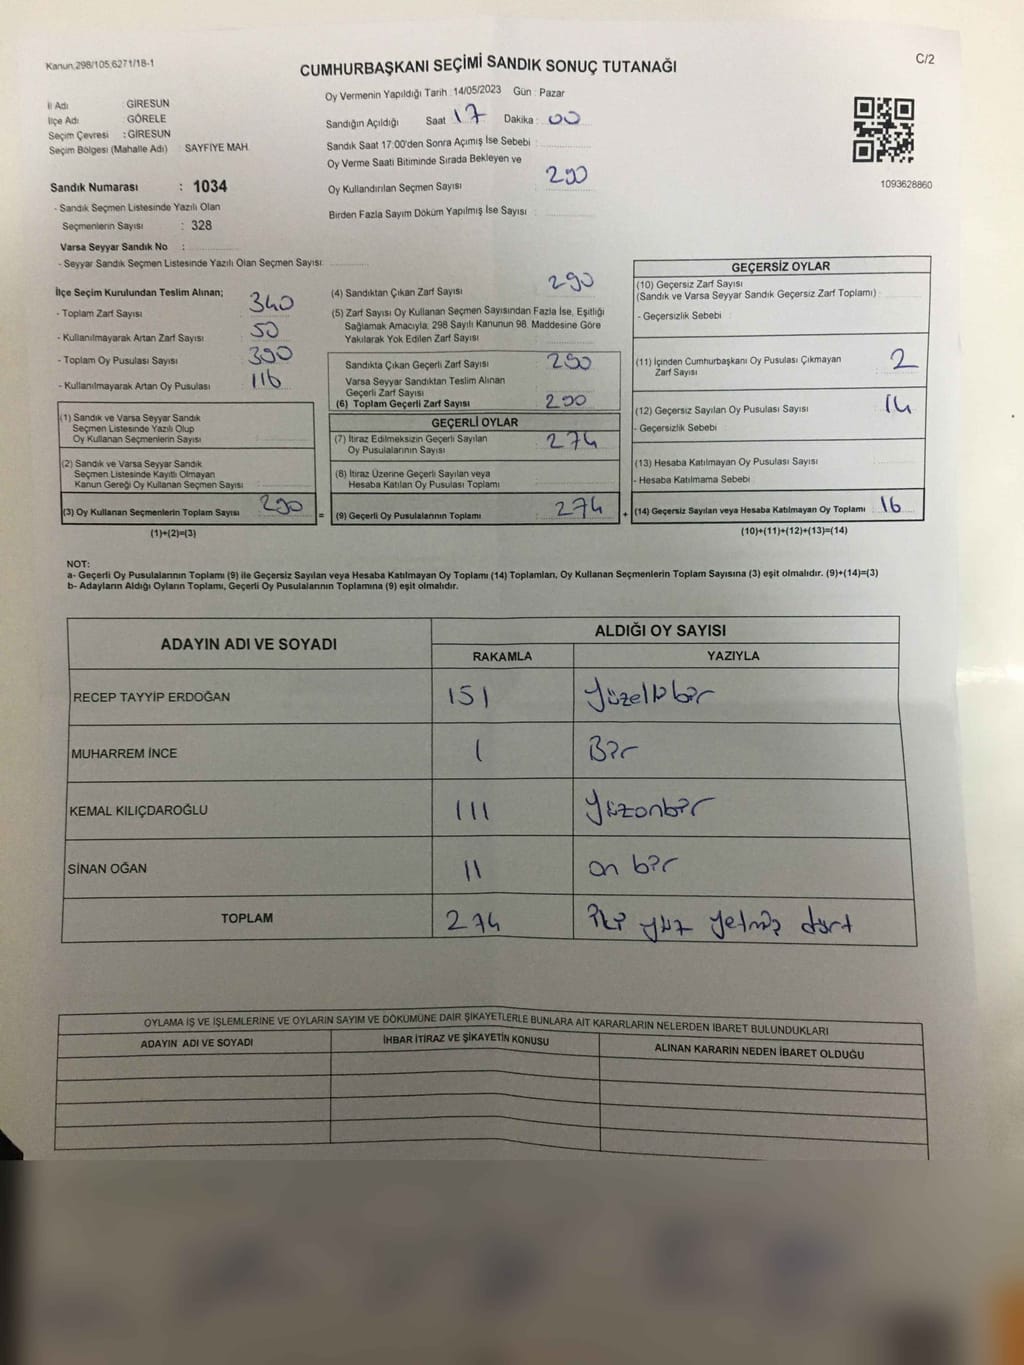 Kanun,298/105,6271/18-1
C/2
CUMHURBAŞKANI SEÇİMİ SANDIK SONUÇ TUTANAĞI
İl Adı GİRESUN
İlçe Adı : GÖRELE
Seçim Çevresi : GİRESUN
Seçim Bölgesi (Mahalle Adı) : SAYFİYE MAH.
Sandık Numarası : 1034
- Sandık Seçmen Listesinde Yazılı Olan
Seçmenlerin Sayısı : 328
Varsa Seyyar Sandık No :
- Seyyar Sandık Seçmen Listesinde Yazılı Olan Seçmen Sayısı:
Oy Vermenin Yapıldığı Tarih : 14/05/2023 Gün : Pazar
Sandığın Açıldığı Saat 17 Dakika : 00
Sandık Saat 17:00'den Sonra Açımış İse Sebebi :
Oy Verme Saati Bitiminde Sırada Bekleyen ve
Oy Kullandırılan Seçmen Sayısı : 290
Birden Fazla Sayım Döküm Yapılmış İse Sayısı :
1093628860
İlçe Seçim Kurulundan Teslim Alınan;
- Toplam Zarf Sayısı : 340
- Kullanılmayarak Artan Zarf Sayısı : 50
- Toplam Oy Pusulası Sayısı : 390
- Kullanılmayarak Artan Oy Pusulası : 116
(1) Sandık ve Varsa Seyyar Sandık
Seçmen Listesinde Yazılı Olup
Oy Kullanan Seçmenlerin Sayısı :
(2) Sandık ve Varsa Seyyar Sandık
Seçmen Listesinde Kayıtlı Olmayan
Kanun Gereği Oy Kullanan Seçmen Sayısı :
(3) Oy Kullanan Seçmenlerin Toplam Sayısı : 290
(1)+(2)=(3)
=
(4) Sandıktan Çıkan Zarf Sayısı : 290
(5) Zarf Sayısı Oy Kullanan Seçmen Sayısından Fazla İse, Eşitliği
Sağlamak Amacıyla; 298 Sayılı Kanunun 98. Maddesine Göre
Yakılarak Yok Edilen Zarf Sayısı :
Sandıkta Çıkan Geçerli Zarf Sayısı : 290
Varsa Seyyar Sandıktan Teslim Alınan
Geçerli Zarf Sayısı :
(6) Toplam Geçerli Zarf Sayısı : 290
GEÇERLİ OYLAR
(7) İtiraz Edilmeksizin Geçerli Sayılan
Oy Pusulalarının Sayısı : 274
(8) İtiraz Üzerine Geçerli Sayılan veya
Hesaba Katılan Oy Pusulası Toplamı :
(9) Geçerli Oy Pusulalarının Toplamı : 274
+
GEÇERSİZ OYLAR
(10) Geçersiz Zarf Sayısı
(Sandık ve Varsa Seyyar Sandık Geçersiz Zarf Toplamı) :
- Geçersizlik Sebebi :
(11) İçinden Cumhurbaşkanı Oy Pusulası Çıkmayan
Zarf Sayısı : 2
(12) Geçersiz Sayılan Oy Pusulası Sayısı : 14
- Geçersizlik Sebebi :
(13) Hesaba Katılmayan Oy Pusulası Sayısı :
- Hesaba Katılmama Sebebi :
(14) Geçersiz Sayılan veya Hesaba Katılmayan Oy Toplamı : 16
(10)+(11)+(12)+(13)=(14)
NOT:
a- Geçerli Oy Pusulalarının Toplamı (9) ile Geçersiz Sayılan veya Hesaba Katılmayan Oy Toplamı (14) Toplamları, Oy Kullanan Seçmenlerin Toplam Sayısına (3) eşit olmalıdır. (9)+(14)=(3)
b- Adayların Aldığı Oyların Toplamı, Geçerli Oy Pusulalarının Toplamına (9) eşit olmalıdır.
ADAYIN ADI VE SOYADI ALDIĞI OY SAYISI
RAKAMLA YAZIYLA
RECEP TAYYİP ERDOĞAN 151 Yüzellibir
MUHARREM İNCE 1 Bir
KEMAL KILIÇDAROĞLU 111 Yüzonbir
SİNAN OĞAN 11 on bir
TOPLAM 274 iki yüz yetmiş dört
OYLAMA İŞ VE İŞLEMLERİNE VE OYLARIN SAYIM VE DÖKÜMÜNE DAİR ŞİKAYETLERLE BUNLARA AİT KARARLARIN NELERDEN İBARET BULUNDUKLARI
ADAYIN ADI VE SOYADI İHBAR İTİRAZ VE ŞİKAYETİN KONUSU ALINAN KARARIN NEDEN İBARET OLDUĞU